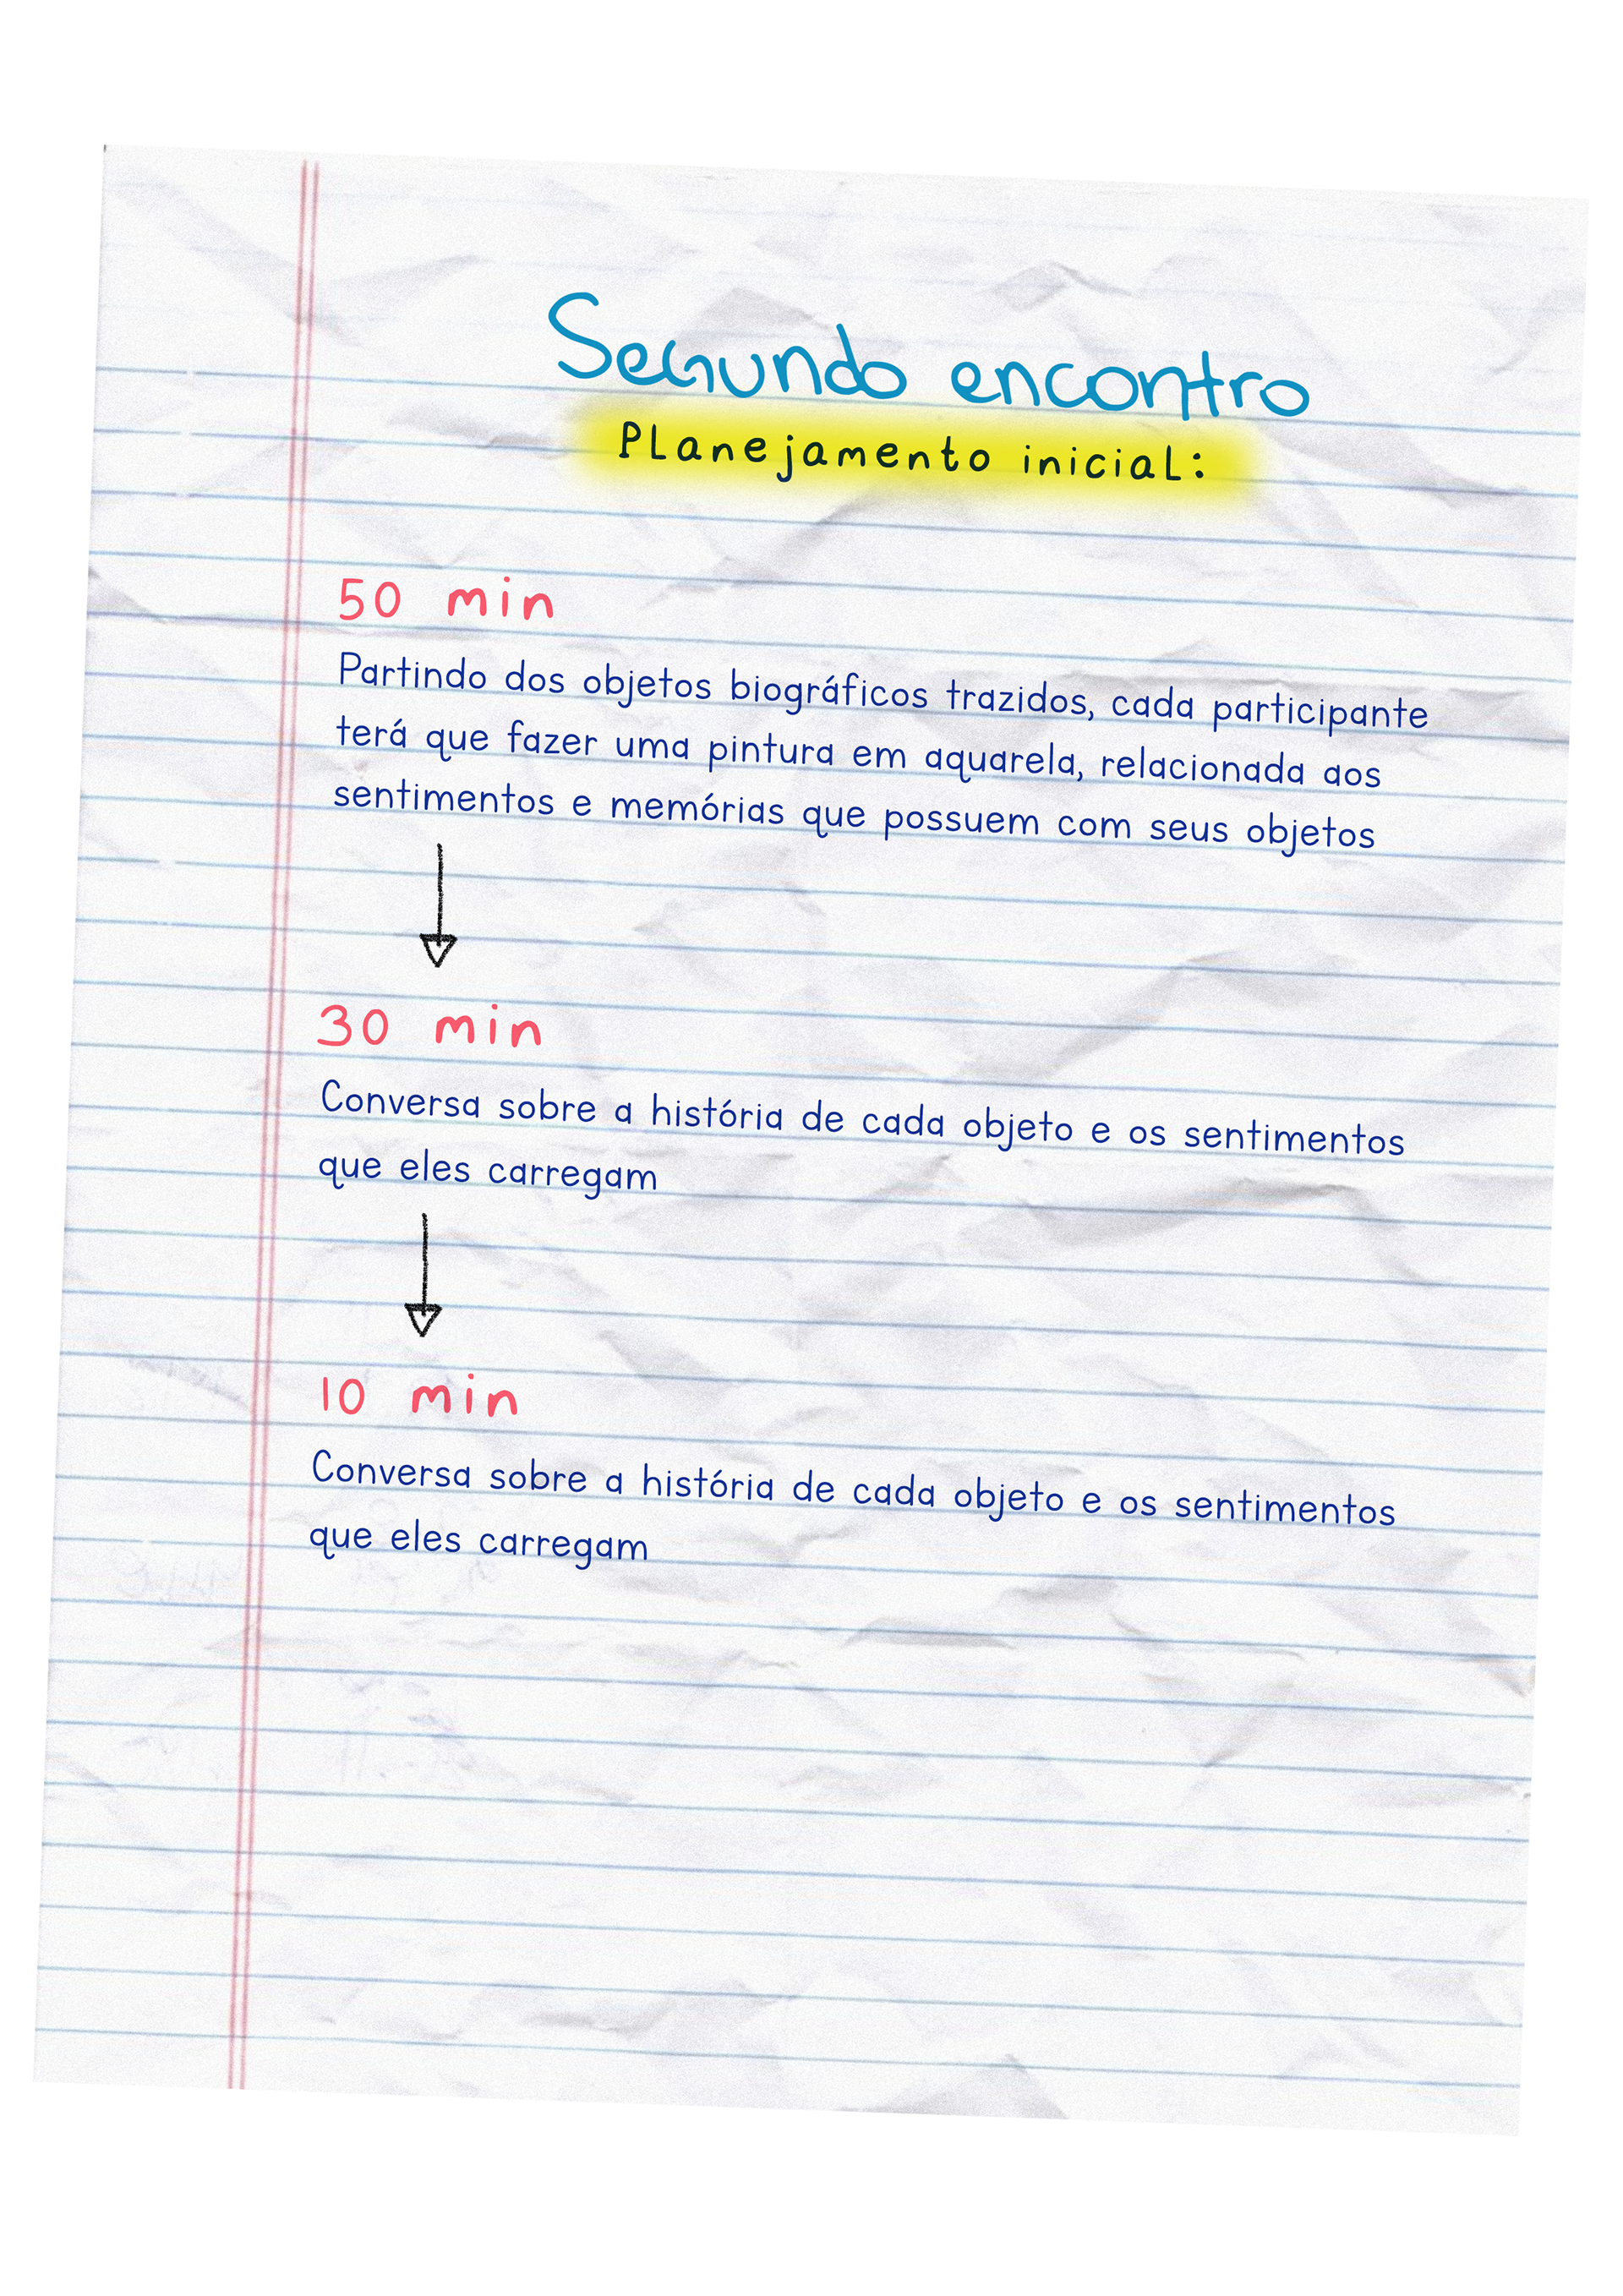 Segundo encontro
Planejamento inicial:
50 min
Partindo dos objetos biográficos trazidos, cada participante
terá que fazer uma pintura em aquarela, relacionada aos
sentimentos e memórias que possuem com seus objetos
30 min
Conversa sobre a história de cada objeto e os sentimentos
que eles carregam
10 min
Conversa sobre a história de cada objeto e os sentimentos
que eles carregam